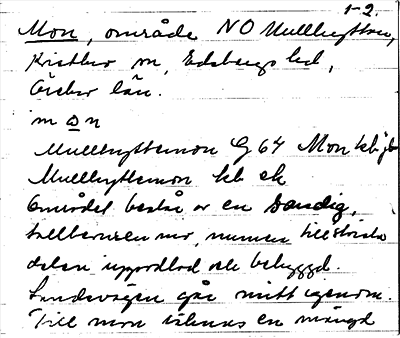 1-2.
Mon, område NO Mullhyttan,
Kvistbro sn, Edsbergs hd,
Örebro län.
mon
Mullhyttemon G 64 Mon kbg
Mullhyttemon kb ek
Området består av en sandig,
tallbevuxen mo, numera till största
delen uppodlad och bebyggd.
Landsvägen går mitt igenom.
Till mon räknas en mängd